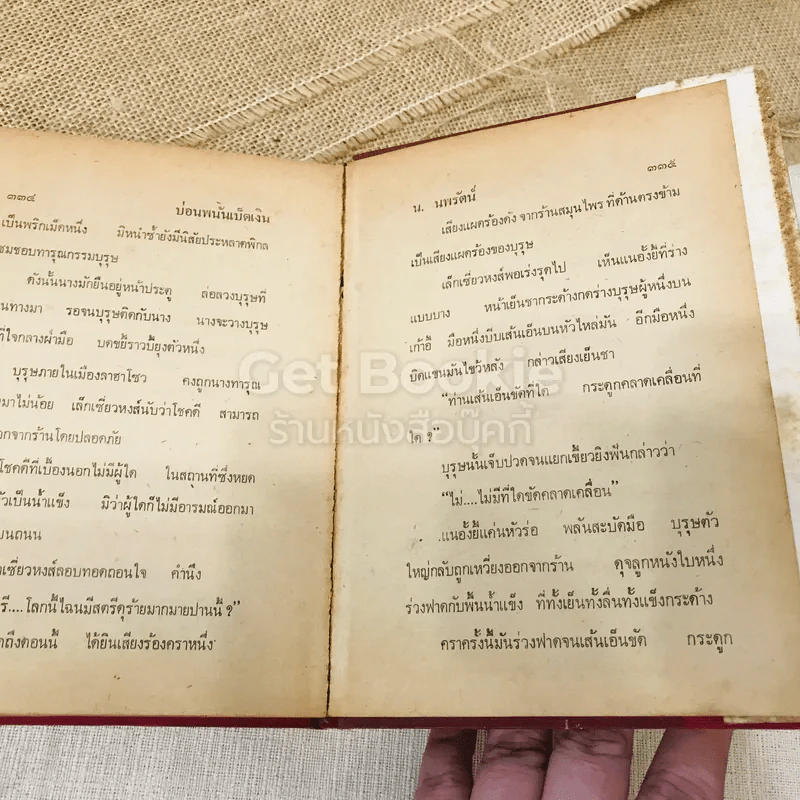 ๓๓๔
บ่อนพนันเบ็ดเงิน
เป็นพริกเม็ดหนึ่ง มิหนำซ้ำยังมีนิสัยประหลาดพิกล
ชมชอบทารุณกรรมบุรุษ
ดังนั้นนางมักยืนอยู่หน้าประตู ล่อลวงบุรุษที่
นทางมา รอจนบุรุษติดกับนาง นางจะวางบุรุษ
ที่ใจกลางฝ่ามือ บดขยี้ราวบี้ยุงตัวหนึ่ง
บุรุษภายในเมืองลาฮาโซว คงถูกนางทารุณ
มาไม่น้อย เล็กเซี่ยวหงส์นับว่าโชคดี สามารถ
กจากร้านโดยปลอดภัย
โชคดีที่เบื้องนอกไม่มีผู้ใด ในสถานที่ซึ่งหยด
ัวเป็นน้ำแข็ง มิว่าผู้ใดก็ไม่มีอารมณ์ออกมา
บนถนน
เซี่ยวหงส์ลอบทอดถอนใจ คำนึง
รี....โลกนี้ไฉนมีสตรีดุร้ายมากมายปานนี้ ?"
ถึงตอนนี้ ได้ยินเสียงร้องคราหนึ่ง
๓๓๕
น. นพรัตน์
เสียงแผดร้องดัง จากร้านสมุนไพร ที่ด้านตรงข้าม
เป็นเสียงแผดร้องของบุรุษ
เล็กเซี่ยวหงส์พอเร่งรุดไป เห็นแนอั้งยี้ที่ร่าง
แบบบาง หน้าเย็นชากระด้างกดร่างบุรุษผู้หนึ่งบน
เก้าอี้ มือหนึ่งบีบเส้นเอ็นบนหัวไหล่มัน อีกมือหนึ่ง
บิดแขนมันไขว้หลัง กล่าวเสียงเย็นชา
"ท่านเส้นเอ็นขัดที่ใด กระดูกคลาดเคลื่อนที่
ใด ?"
บุรุษนั้นเจ็บปวดจนแยกเขี้ยวยิงฟันกล่าวว่า
"ไม่....ไม่มีที่ใดขัดคลาดเคลื่อน"
แนอั้งยี้แค่นหัวร่อ พลันสะบัดมือ บุรุษตัว
ใหญ่กลับถูกเหวี่ยงออกจากร้าน ดุจลูกหนังใบหนึ่ง
ร่วงฟาดกับพื้นน้ำแข็ง ที่ทั้งเย็นทั้งลื่นทั้งแข็งกระด้าง
คราครั้งนี้มันร่วงฟาดจนเส้นเอ็นขัด กระดูก
Get Bookie
ร้านหนังสือบุ๊คกี้